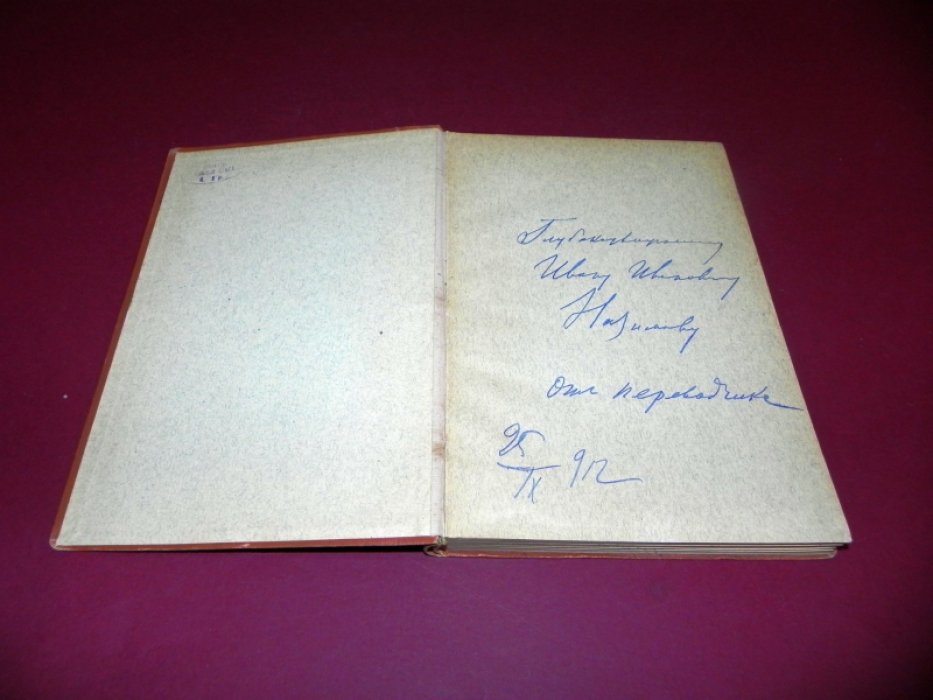 Глубокоуважаемому
Ивану Ивановичу
Назимову
от переводчика
25
IX